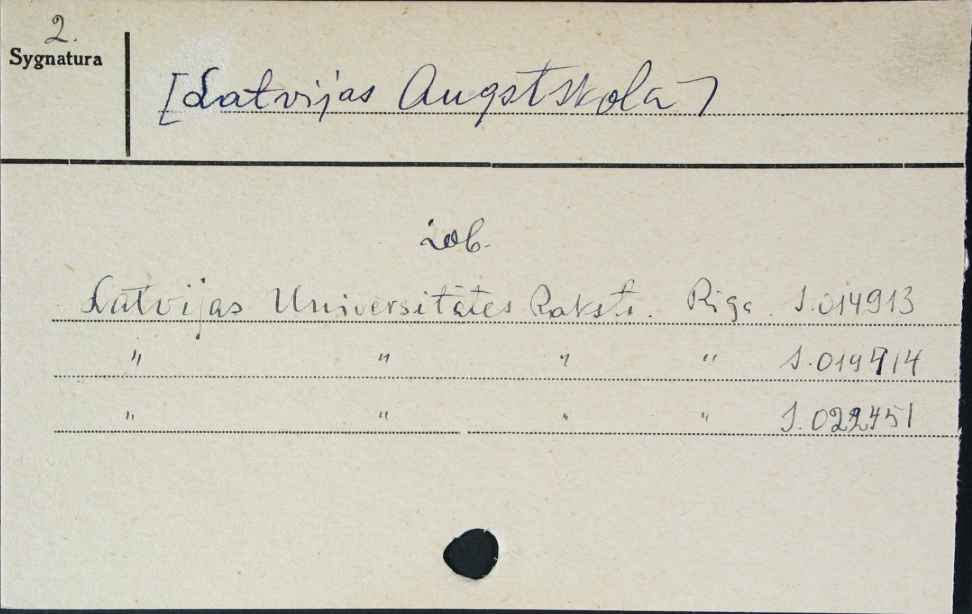 2.
Sygnatura
[Latvijas Augstskola]
zob.
Latvijas Universitātes Raksti. Riga. S.014913
" " " " S.019914
" " " " S.022451